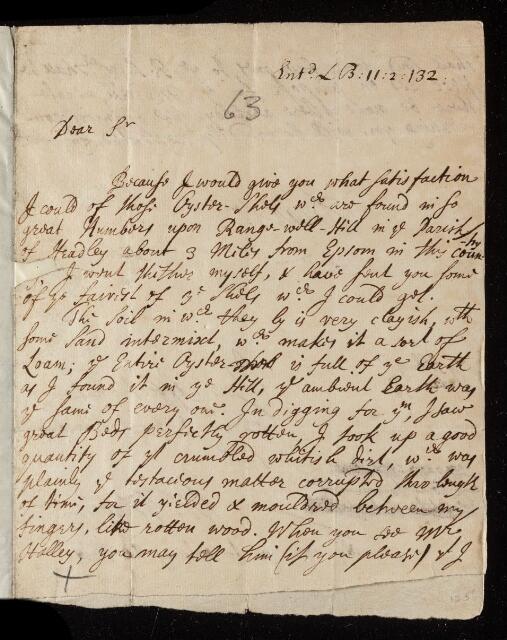 Entd. LB: 11: 2: 132.
63
Dear Sr
Because I would give you what satisfaction
I could of those Oyster-Shels wch are found in so
great Numbers upon Range-well-Hill in ye Parish
of Headley about 3 Miles from Epsom in this Coun-
ty
I went thither myself, & have sent you some
of ye fairest of ye Shels wch I could get.
The Soil in wch they ly is very clayish, wth
some Sand intermixt, wch makes it a sort of
Loam; ye Entire Oyster is full of ye Earth
as I found it in ye Hill, ye ambient Earth was
ye same of every one. In digging for ym, I saw
great Beds perfectly rotten, I took up a good
quantity of yt crumbled whitish dirt, wch was
plainly ye testacious matter corrupted thro length
of time, for it yielded & mouldred between my
fingers, like rotten wood. When you see Mr
Halley, you may tell him (if you please) yt I